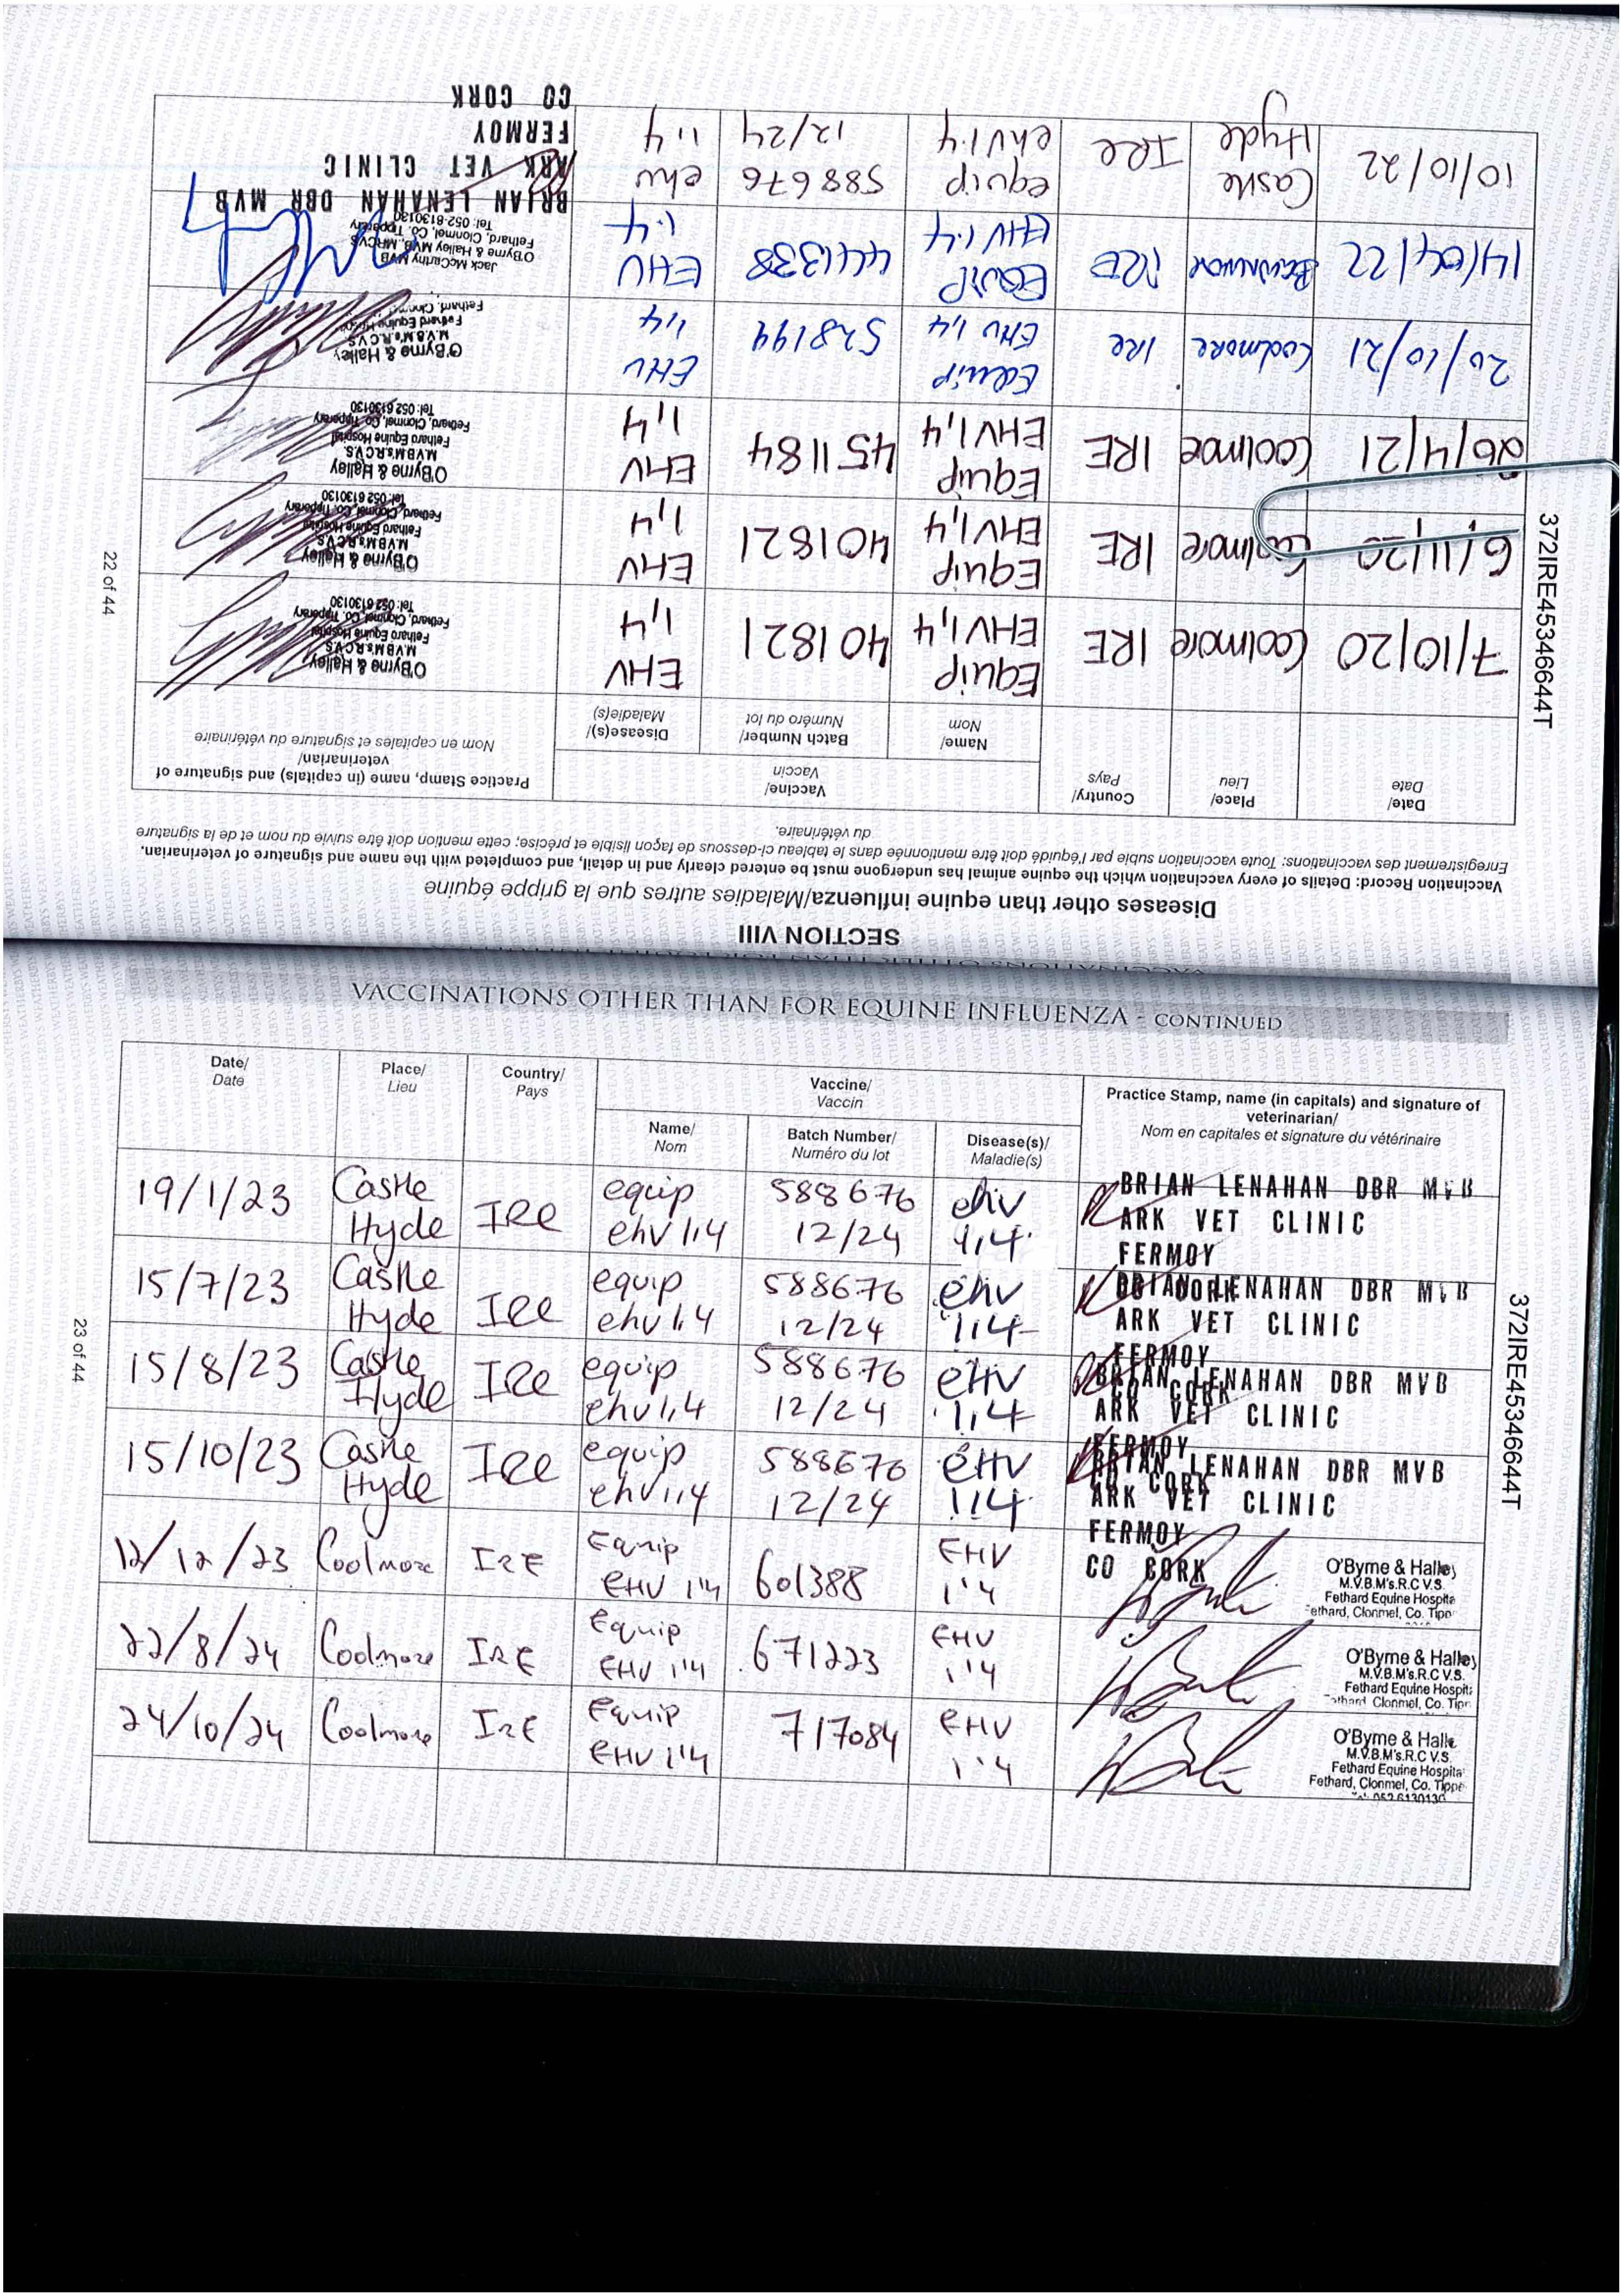 SECTION VIII
Diseases other than equine influenza/Maladies autres que la grippe équine
Vaccination Record: Details of every vaccination which the equine animal has undergone must be entered clearly and in detail, and completed with the name and signature of veterinarian.
Enregistrement des vaccinations: Toute vaccination subie par l'équidé doit être mentionnée dans le tableau ci-dessous de façon lisible et précise; cette mention doit être suivie du nom et de la signature
du vétérinaire.
Date/
Date
Place/
Lieu
Country/
Pays
Vaccine/
Vaccin
Name/
Nom
Batch Number/
Numéro du lot
Disease(s)/
Maladie(s)
Practice Stamp, name (in capitals) and signature of
veterinarian/
Nom en capitales et signature du vétérinaire
7/10/20 Coolmore IRE Equip 401821 EHV
EHV 1,4 1,4
O'Byrne & Halley
M.V.B.M's.R.C.V.S.
Fethard Equine Hospital
Fethard, Clonmel, Co. Tipperary
Tel: 052 6130130
6/11/20 Coolmore IRE Equip 401821 EHV
EHV 1,4 1,4
O'Byrne & Halley
M.V.B.M's.R.C.V.S.
Fethard Equine Hospital
Fethard, Clonmel, Co. Tipperary
Tel: 052 6130130
26/4/21 Coolmore IRE Equip 451184 EHV
EHV 1,4 1,4
O'Byrne & Halley
M.V.B.M's.R.C.V.S.
Fethard Equine Hospital
Fethard, Clonmel, Co. Tipperary
Tel: 052 6130130
20/10/21 Coolmore IRE Equip 528194 EHV
EHV 1,4 1,4
O'Byrne & Halley
M.V.B.M's.R.C.V.S.
Fethard Equine
Fethard, Clonmel
14/04/22 EQUIP 441338 EHV
EHV 1.4 1.4
Jack McCarthy MVB
O'Byrne & Halley MVB, MRCVS
Fethard, Clonmel, Co. Tipperary
Tel: 052-6130130
10/10/22 Castle IRe equip 588676 ehv
Hyde ehv1.4 12/24 1,4
BRIAN LENAHAN DBR MVB
ARK VET CLINIC
FERMOY
CO CORK
372IRE45346644T
22 of 44
VACCINATIONS OTHER THAN FOR EQUINE INFLUENZA - CONTINUED
Date/
Date
Place/
Lieu
Country/
Pays
Vaccine/
Vaccin
Name/
Nom
Batch Number/
Numéro du lot
Disease(s)/
Maladie(s)
Practice Stamp, name (in capitals) and signature of
veterinarian/
Nom en capitales et signature du vétérinaire
19/1/23 Castle IRe equip 588676 ehv
Hyde ehv 1,4 12/24 1,4
BRIAN LENAHAN DBR MVB
ARK VET CLINIC
FERMOY
CO CORK
15/7/23 Castle IRe equip 588676 ehv
Hyde ehv 1,4 12/24 1,4
BRIAN LENAHAN DBR MVB
ARK VET CLINIC
FERMOY
CO CORK
15/8/23 Castle IRe equip 588676 eHv
Hyde ehv 1,4 12/24 1,4
BRIAN LENAHAN DBR MVB
ARK VET CLINIC
FERMOY
CO CORK
15/10/23 Castle IRe equip 588676 eHv
Hyde ehv 1,4 12/24 1,4
BRIAN LENAHAN DBR MVB
ARK VET CLINIC
FERMOY
CO CORK
12/12/23 Coolmore IRE Equip 601388 EHV
EHV 1'4 1'4
O'Byrne & Halley
M.V.B.M's.R.C V.S.
Fethard Equine Hospita
Fethard, Clonmel, Co. Tipp
22/8/24 Coolmore IRE Equip 671223 EHV
EHV 1'4 1'4
O'Byrne & Halley
M.V.B.M's.R.C V.S.
Fethard Equine Hospita
Fethard, Clonmel, Co. Tipp
24/10/24 Coolmore IRE Equip 717084 EHV
EHV 1'4 1'4
O'Byrne & Halle
M.V.B.M's.R.C V.S.
Fethard Equine Hospita
Fethard, Clonmel, Co. Tippe
Tel: 052 6130130
372IRE45346644T
23 of 44